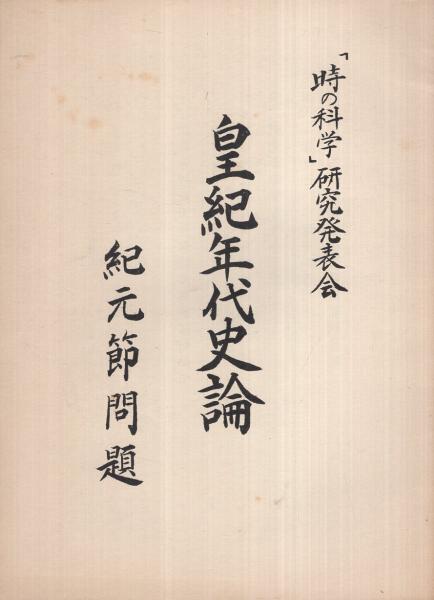 「時の科学」研究発表会
皇紀年代史論
紀元節問題